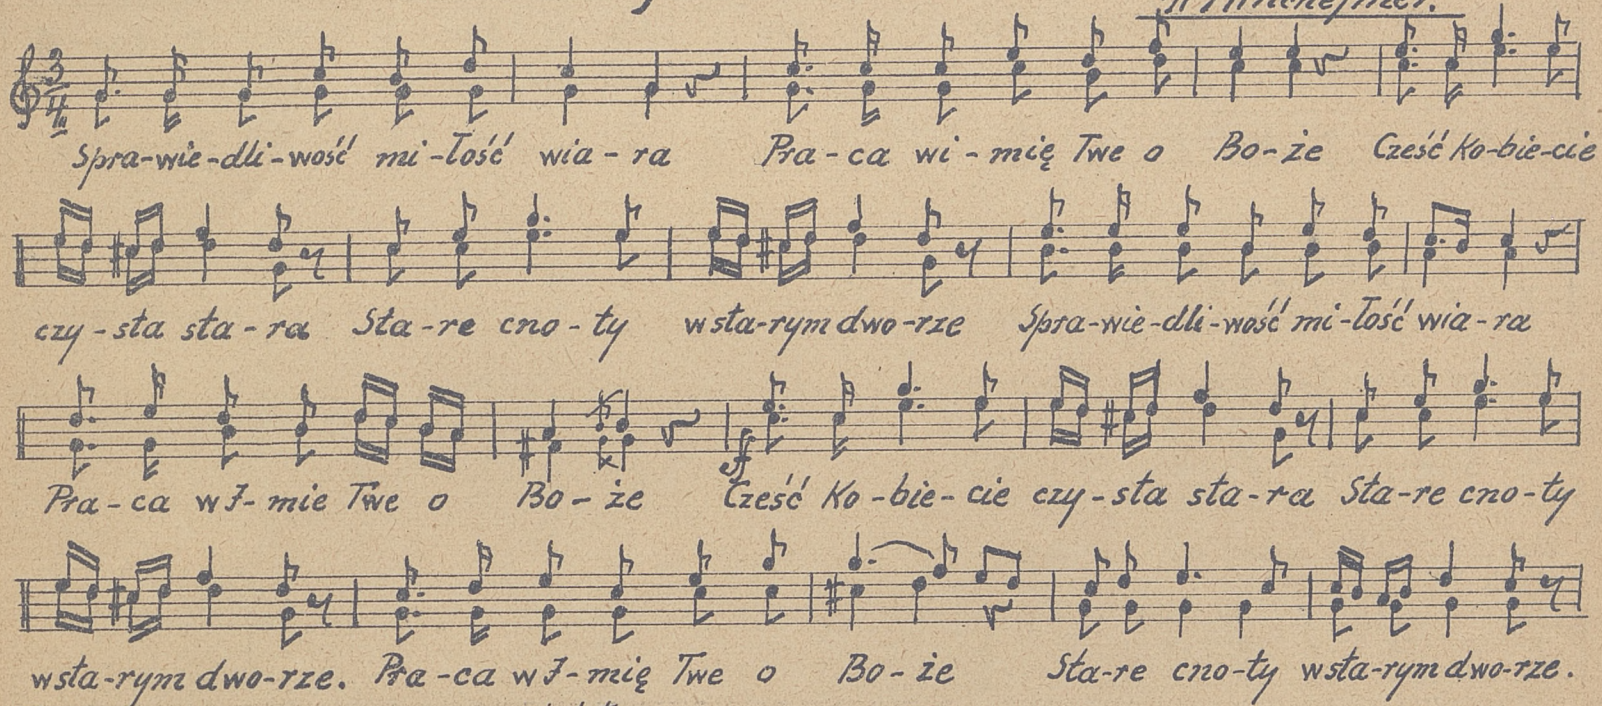 Spra-wie-dli-wość mi-łość wia-ra Pra-ca wi-mię Twe o Bo-że Cześć Ko-bie-cie
czy-sta sta-ra Sta-re cno-ty wsta-rym dwo-rze Spra-wie-dli-wość mi-łość wia-ra
Pra-ca w I-mie Twe o Bo-że Cześć Ko-bie-cie czy-sta sta-ra Sta-re cno-ty
wsta-rym dwo-rze. Pra-ca w I-mię Twe o Bo-że Sta-re cno-ty wsta-rym dwo-rze.